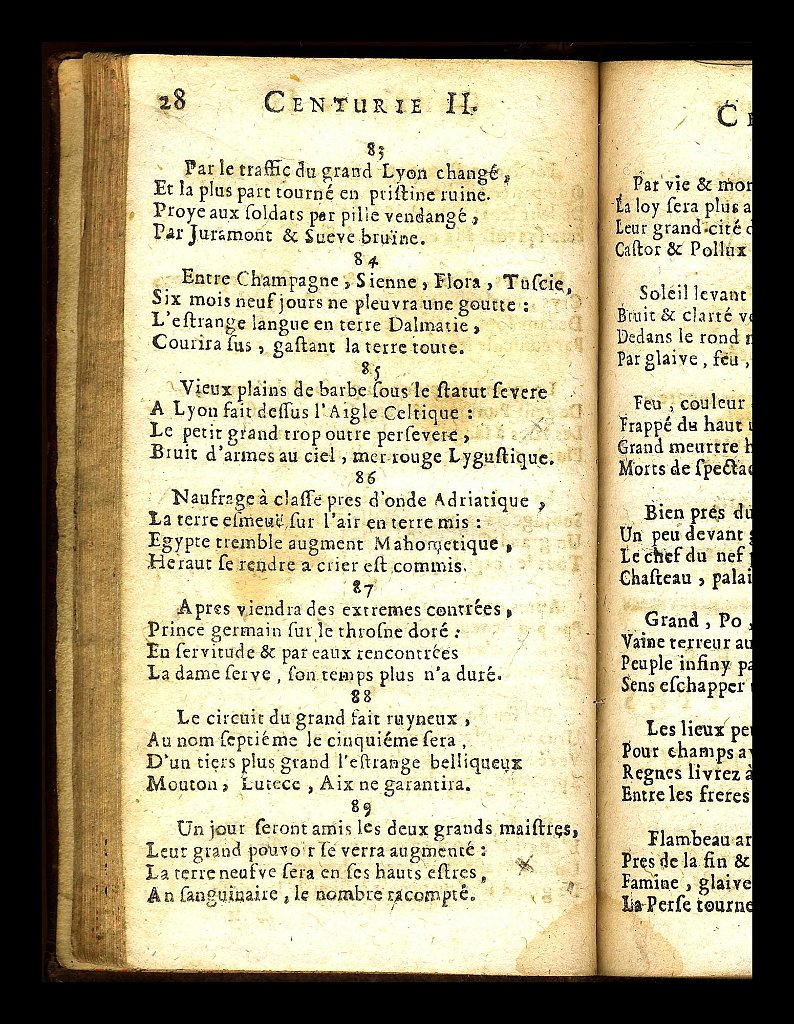 28 CENTURIE II.
83
Par le traffic du grand Lyon changé,
Et la plus part tourné en pristine ruine.
Proye aux soldats par pille vendangé,
Par Juramont & Sueve bruïne.
84
Entre Champagne, Sienne, Flora, Tuscie,
Six mois neuf jours ne pleuvra une goutte :
L'estrange langue en terre Dalmatie,
Courira sus, gastant la terre toute.
85
Vieux plains de barbe sous le statut severe
A Lyon fait dessus l'Aigle Celtique :
Le petit grand trop outre persevere,
Bruit d'armes au ciel, mer rouge Lygustique.
86
Naufrage à classe pres d'onde Adriatique,
La terre esmeuë sur l'air en terre mis :
Egypte tremble augment Mahometique,
Heraut se rendre a crier est commis.
87
Apres viendra des extremes contrées,
Prince germain sur le throsne doré :
En servitude & par eaux rencontrées
La dame serve, son temps plus n'a duré.
88
Le circuit du grand fait ruyneux,
Au nom septiéme le cinquiéme sera,
D'un tiers plus grand l'estrange belliqueux
Mouton, Lutece, Aix ne garantira.
89
Un jour seront amis les deux grands maistres,
Leur grand pouvoir se verra augmenté :
La terre neufve sera en ses hauts estres,
An sanguinaire, le nombre racompté.
C
Par vie & mor
La loy sera plus a
Leur grand cité
Castor & Pollux
Soleil levant
Bruit & clarté
Dedans le rond
Par glaive, feu,
Feu, couleur
Frappé du haut
Grand meurtre
Morts de
Bien pres du
Un peu devant
Le chef du nef
Chasteau, palai
Grand, Po,
Vaine terreur au
Peuple infiny pa
Sens eschapper
Les lieux pe
Pour champs a
Regnes livrez à
Entre les freres
Flambeau ar
Pres de la fin &
Famine, glaive
La Perse tourne